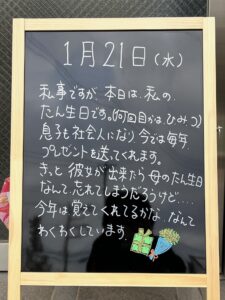 1月21日(水)
私事ですが、本日は、私の
たん生日です。(何回目かは、ひみつ)
息子も社会人になり、今では毎年
プレゼントを送ってくれます。
きっと彼女が出来たら母のたん生日
なんて、忘れてしまうだろうけど‥‥
今年は覚えてくれてるかな、なんて
わくわくしています。